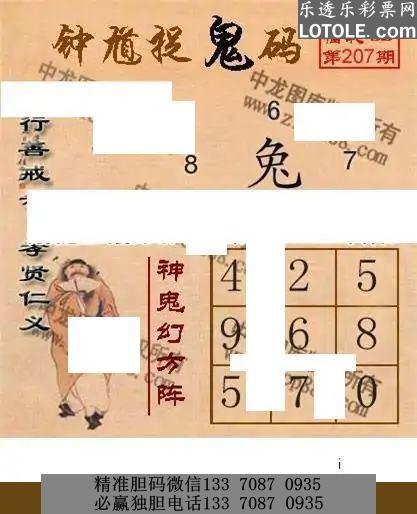 乐透乐彩票网
LOTOLE.COM
钟馗捉鬼码
第207期
行善戒
孝贤仁义
6
8
兔
7
神鬼幻方阵
4 2 5
9 6 8
5 7 0
精准胆码微信133 7087 0935
必赢独胆电话133 7087 0935